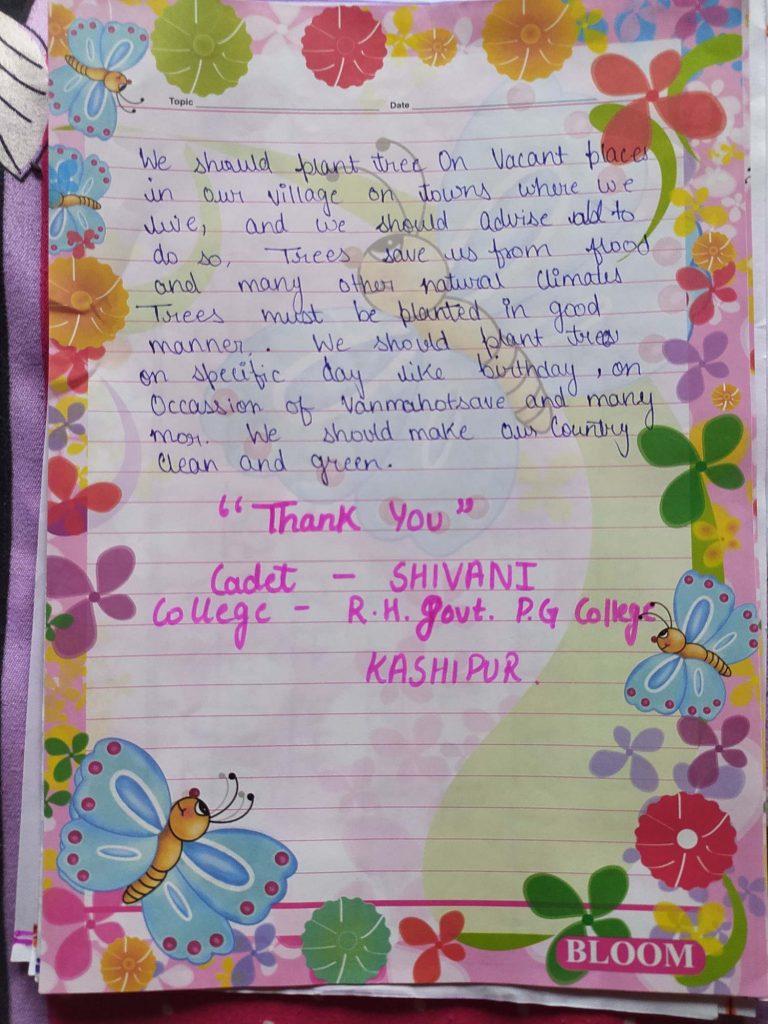 Topic Date
We should plant tree On Vacant places
in our village on towns where we
live, and we should advise all to
do so, Trees save us from flood
and many other natural climates
Trees must be planted in good
manner. We should plant trees
on specific day like birthday, on
Occassion of Vanmahotsave and many
mor. We should make our Country
Clean and green.
"Thank You"
Cadet - SHIVANI
College - R.H. govt. P.G College
KASHIPUR.
BLOOM